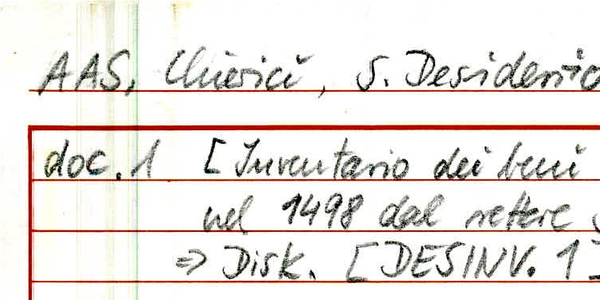 AAS, Chierici, S. Desiderio
doc. 1 [Inventario dei beni
nel 1498 dal rettore
⇒ Disk. [DESINV. 1]